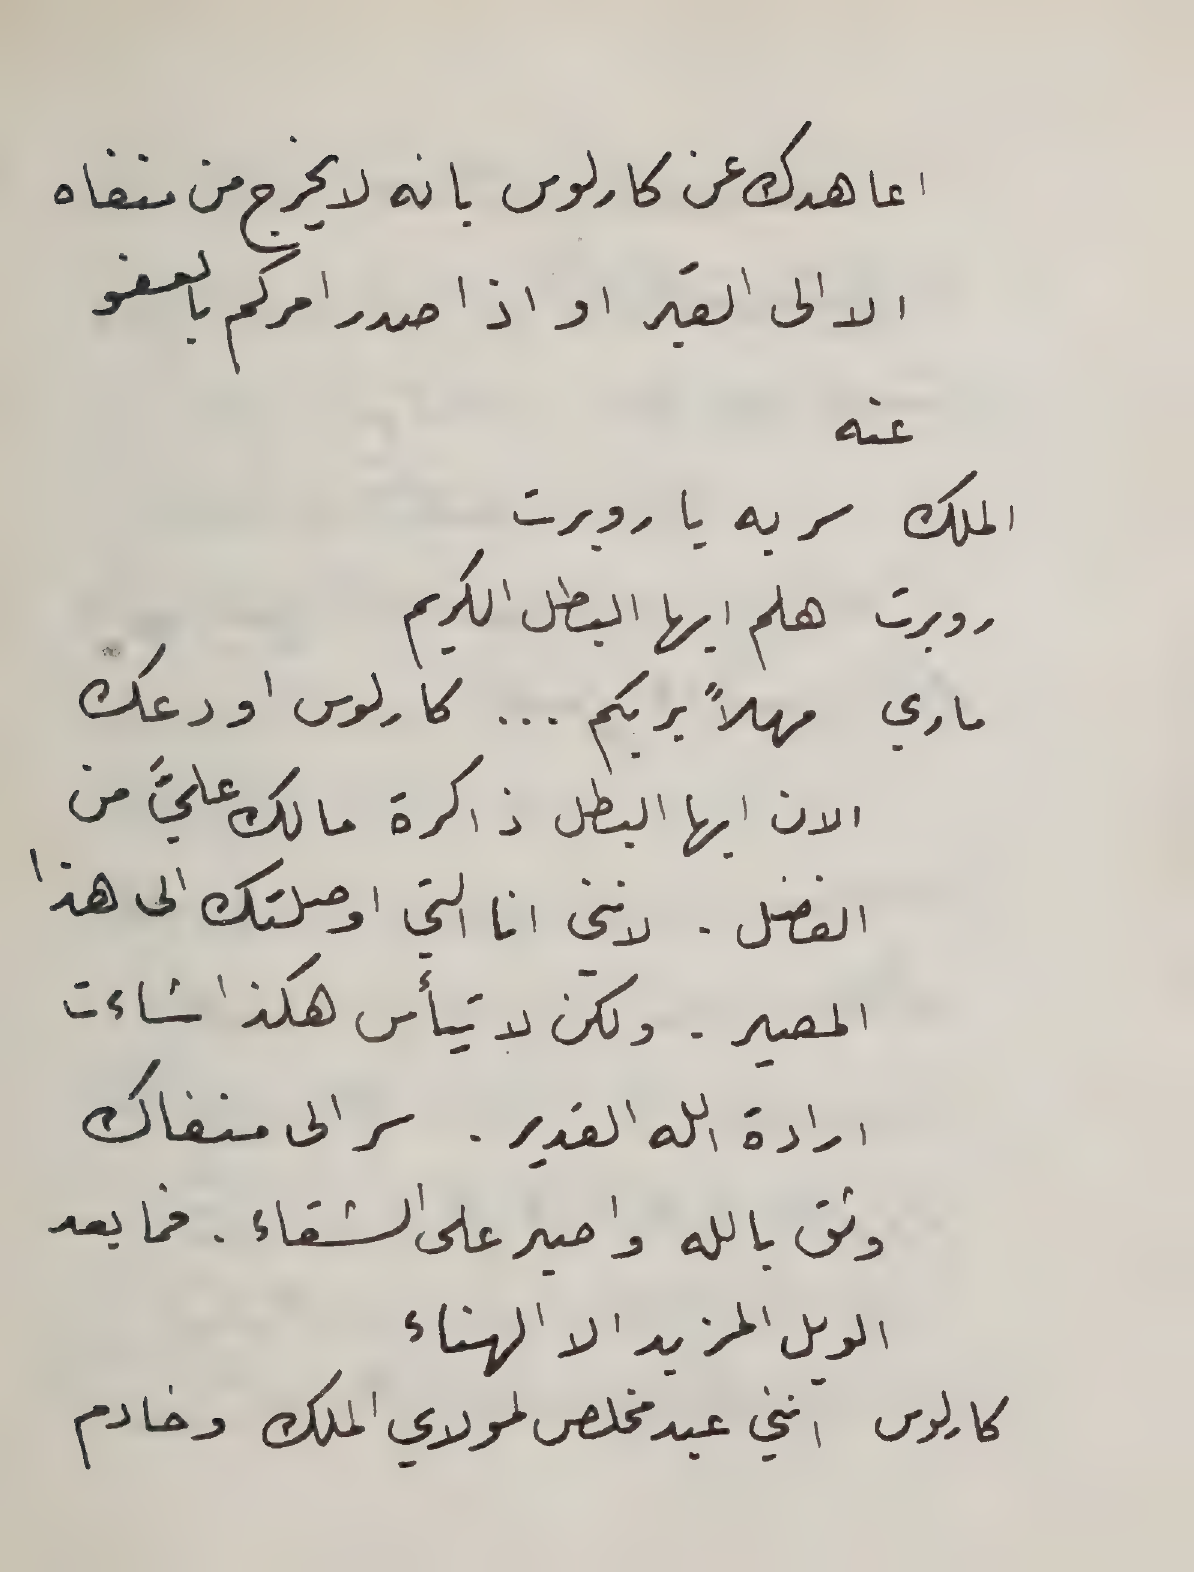 اعاهدك عن كارلوس بانه لا يخرج من منفاه
الا الى القبر او اذا صدر امركم بالعفو
عنه
الملك سر به يا روبرت
روبرت هلم ايها البطل الكريم
ماري مهلاً بربكم ... كارلوس اودعك
الان ايها البطل ذاكرة مالك عليَّ من
الفضل . لانني انا التي اوصلتك الى هذا
المصير . ولكن لا تيأس هكذا شاءت
ارادة الله القدير . سر الى منفاك
وثق بالله واصبر على الشقاء . فما بعد
الويل المزيد الا الهناء
كارلوس انني عبد مخلص لمولاي الملك وخادم